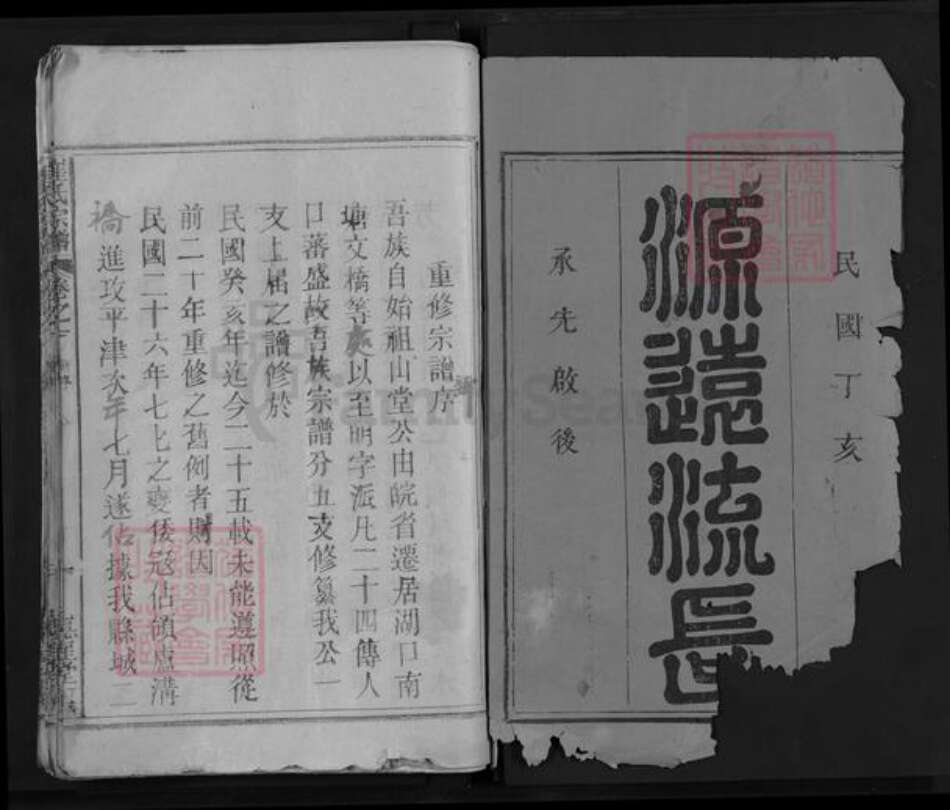 民國丁亥
源遠流長
承先啟後
重修宗譜序
吾族自始祖山堂公由皖省遷居湖口南
塘文橋等處以至明字派凡二十四傳人
口蕃盛故吾族宗譜分五支修纂我公一
支上届之譜修於
民國癸亥年迄今二十五載未能遵照從
前二十年重修之舊例者則因
民國二十六年七七之變倭寇佔領盧溝
橋進攻平津次年七月遂佔據我縣城二
氏宗譜 卷之